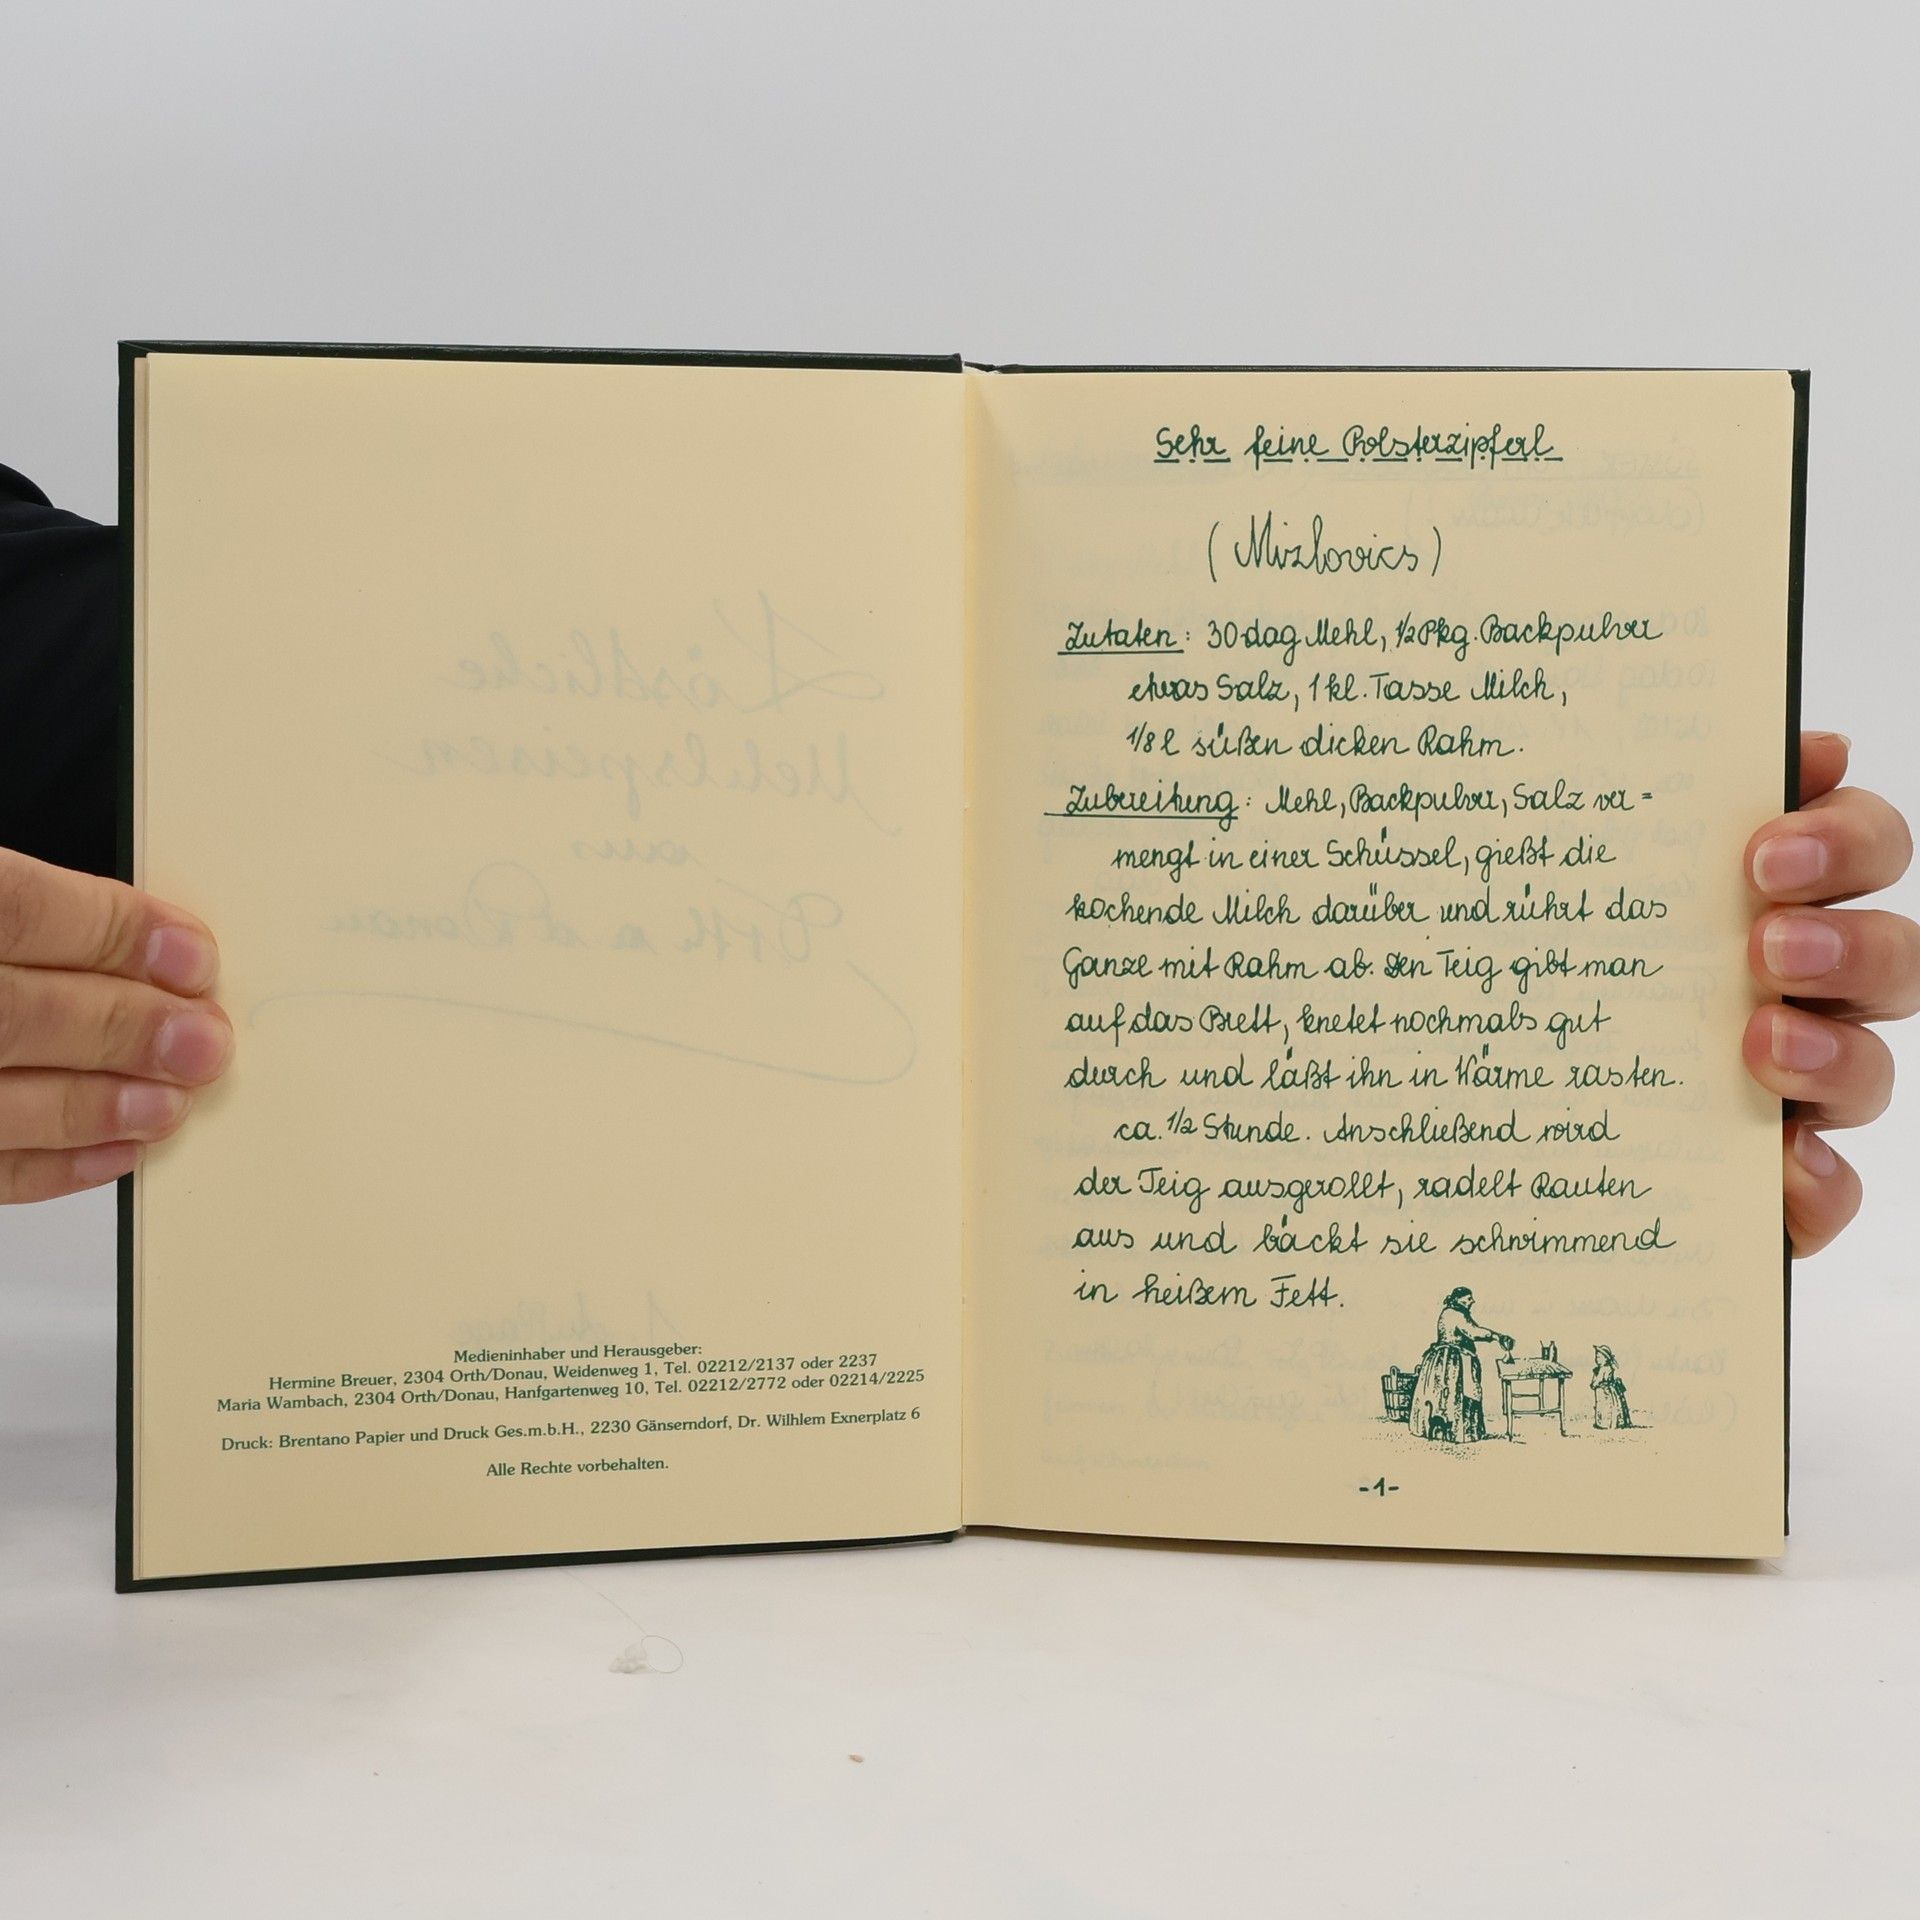 Köstliche
Mehlspeisen
aus
Orth a d Donau
1. Auflage
Medieninhaber und Herausgeber:
Hermine Breuer, 2304 Orth/Donau, Weidenweg 1, Tel. 02212/2137 oder 2237
Maria Wambach, 2304 Orth/Donau, Hanfgartenweg 10, Tel. 02212/2772 oder 02214/2225
Druck: Brentano Papier und Druck Ges.m.b.H., 2230 Gänserndorf, Dr. Wilhlem Exnerplatz 6
Alle Rechte vorbehalten.
Sehr feine Polsterzipferl
(Mizlovics)
Zutaten: 30 dag Mehl, 1/2 Pkg. Backpulver
etwas Salz, 1 kl. Tasse Milch,
1/8 l süßen dicken Rahm.
Zubereitung: Mehl, Backpulver, Salz ver=
mengt in einer Schüssel, gießt die
kochende Milch darüber und rührt das
Ganze mit Rahm ab. Den Teig gibt man
auf das Brett, knetet nochmals gut
durch und läßt ihn in Wärme rasten.
ca. 1/2 Stunde. Anschließend wird
der Teig ausgerollt, radelt Rauten
aus und bäckt sie schwimmend
in heißem Fett.
-1-